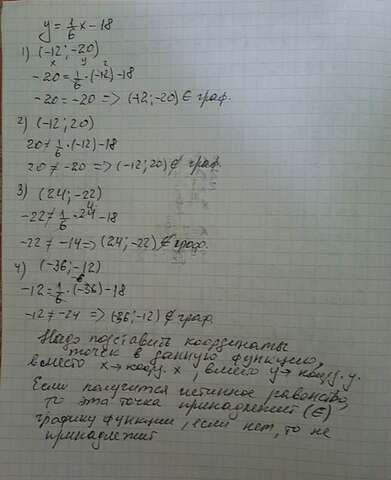 y = 1/6 x - 18
1) (-12; -20)
x y
-20 = 1/6 · (-12) - 18
-20 = -20 => (-12; -20) ∈ граф.
2) (-12; 20)
20 ≠ 1/6 · (-12) - 18
20 ≠ -20 => (-12; 20) ∉ граф.
3) (24; -22)
-22 ≠ 1/6 · 24 - 18
-22 ≠ -14 => (24; -22) ∉ граф.
4) (-36; -12)
-12 = 1/6 · (-36) - 18
-12 ≠ -24 => (-36; -12) ∉ граф.
Надо подставить координаты
точек в данную функцию,
вместо x → коорд. x, вместо y → коорд. y.
Если получится истинное равенство,
то эта точка принадлежит (∈)
графику функции, если нет, то не
принадлежит